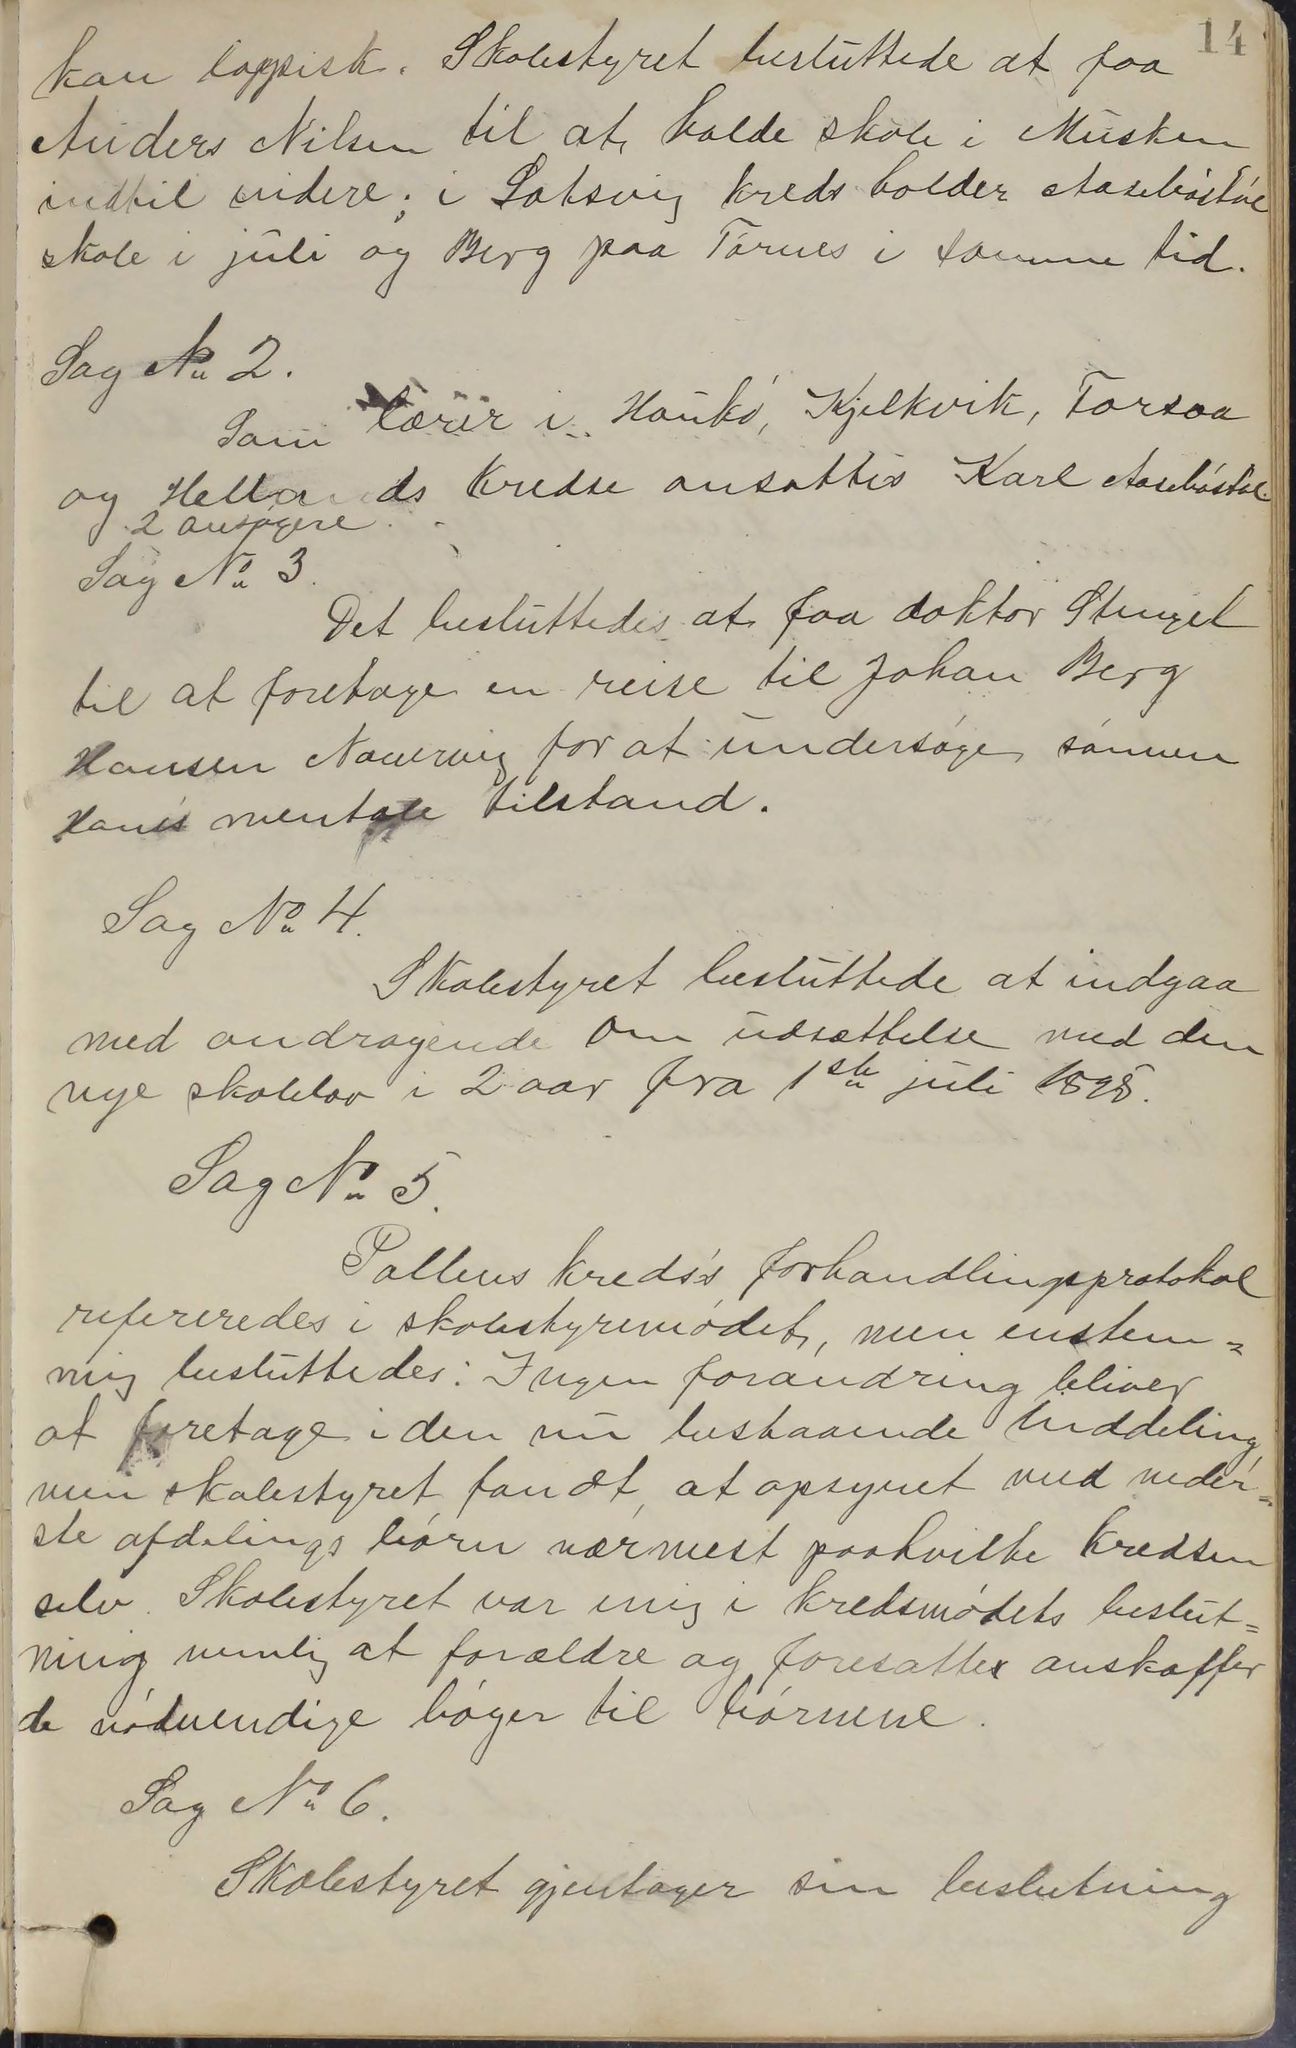 14
kan lappisk. Skolestyret besluttede at faa
Anders Nilsen til at holde skole i Musken
indtil videre; i Saksvig kreds holder Aasebøstøl
skole i juli og Berg paa Tørnes i samme tid.
Sag No 2.
Som lærer i Haukø, Kjelkvik, Forsaa
og Hellands kredse ansattes Karl Aasebøstøl.
2 ansøgere
Sag No 3.
Det besluttedes at faa doktor Stengel
til at foretage en reise til Johan Berg
Hansen Nauervig for at undersøge sønnen
Hans mentale tilstand.
Sag No 4.
Skolestyret besluttede at indgaa
med andragende om udsættelse med den
nye skolelov i 2 aar fra 1ste juli 1898.
Sag No 5.
Pollens kreds's forhandlingsprotokol
refereredes i skolestyremødet, men enstem=
mig besluttedes: Ingen forandring bliver
at foretage i den nu bestaaende inddeling,
men skolestyret fandt, at opsynet med neder=
ste afdelings børn nærmest paahvilte kredsen
selv. Skolestyret var enig i kredsmødets beslut=
ning nemlig at forældre og foresatte anskaffer
de nødvendige bøger til børnene.
Sag No 6.
Skolestyret gjentager sin beslutning